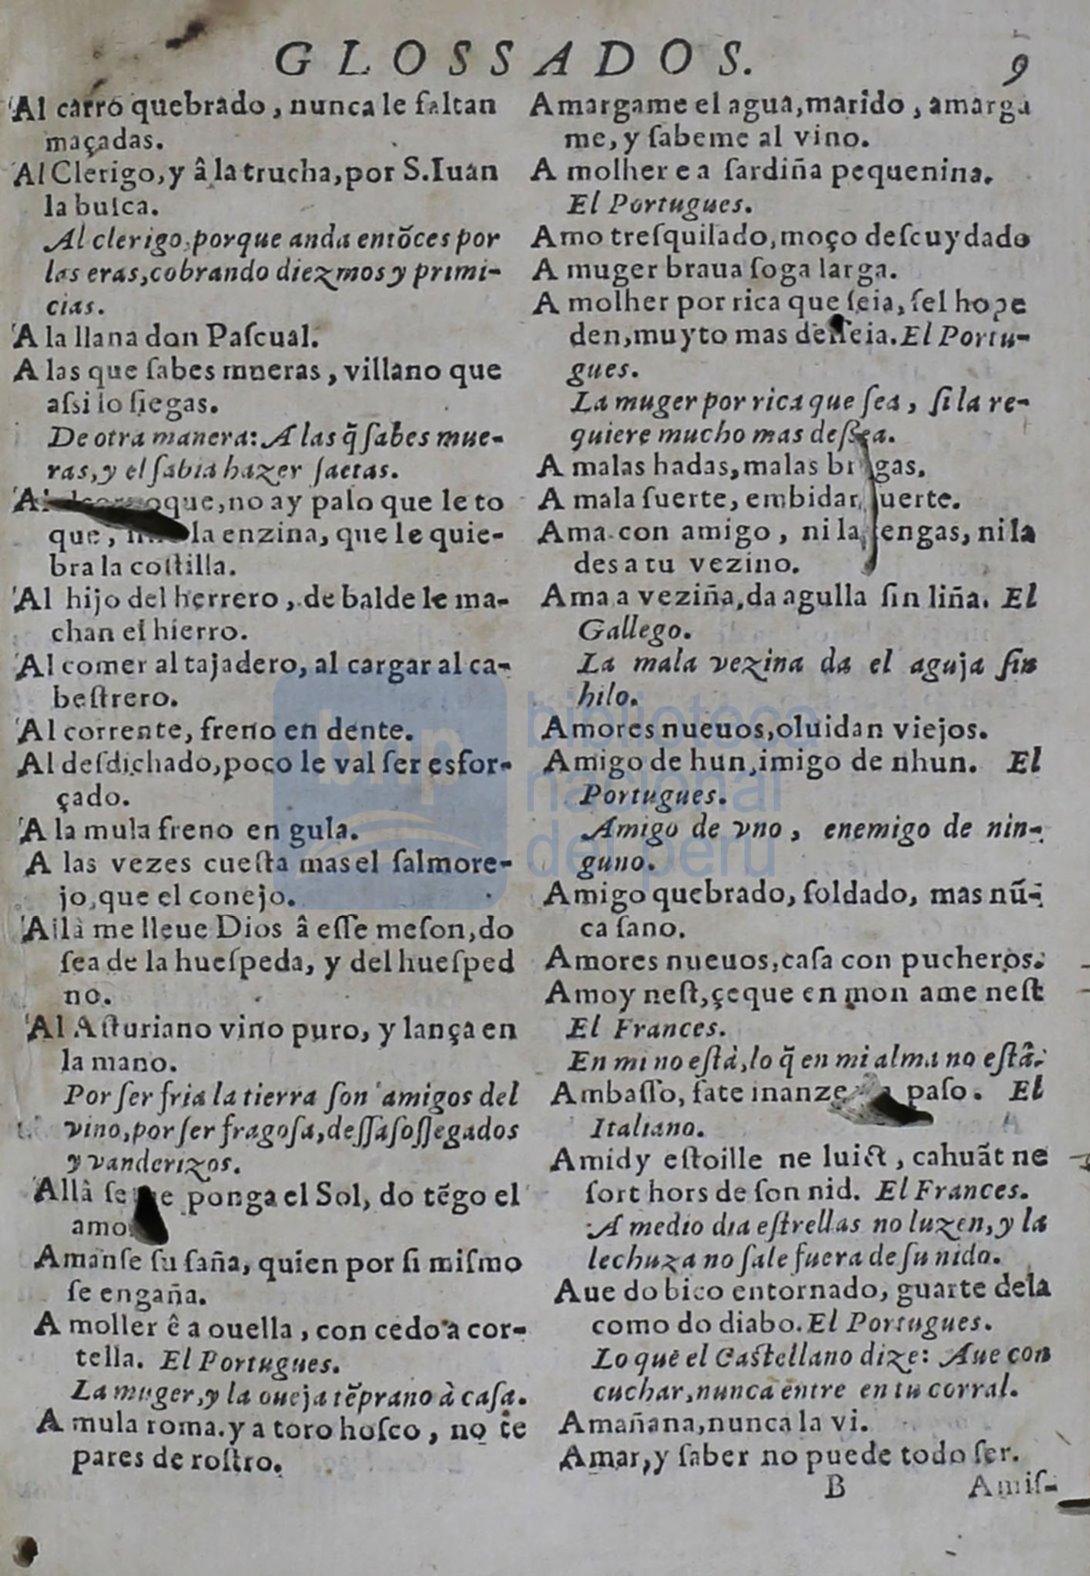 GLOSSADOS. 9
Al carro quebrado, nunca le faltan
maçadas.
Al Clerigo, y â la trucha, por S. Iuan
la buſca.
Al clerigo, porque anda entõces por
las eras, cobrando diezmos y primi-
cias.
A la llana don Paſcual.
A las que ſabes mueras, villano que
aſsi lo ſiegas.
De otra manera: A las q̃ ſabes mue-
ras, y el ſabia hazer ſaetas.
no ay palo que le to
que, la enzina, que le quie-
bra la coſtilla.
Al hijo del herrero, de balde le ma-
chan el hierro.
Al comer al tajadero, al cargar al ca-
beſtrero.
Al corrente, freno en dente.
Al deſdichado, poco le val ſer esfor-
çado.
A la mula freno en gula.
A las vezes cueſta mas el ſalmore-
jo, que el conejo.
Allà me lleue Dios â eſſe meſon, do
ſea de la hueſpeda, y del hueſped
no.
Al Aſturiano vino puro, y lança en
la mano.
Por ſer fria la tierra ſon amigos del
vino, por ſer fragoſa, deſſaſoſſegados
y vanderizos.
Allâ ſe ponga el Sol, do tẽgo el
amo
Amanſe ſu ſaña, quien por ſi miſmo
ſe engaña.
A moller ê a ouella, con cedo a cor-
tella. El Portugues.
La muger, y la oueja tẽprano à caſa.
A mula roma. y a toro hoſco, no te
pares de roſtro.
Amargame el agua, marido, amarga
me, y ſabeme al vino.
A molher e a ſardiña pequenina.
El Portugues.
Amo treſquilado, moço deſcuydado
A muger braua ſoga larga.
A molher por rica que ſeia, ſel ho pe
den, muyto mas deſſeia. El Portu-
gues.
La muger por rica que ſea, ſi la re-
quiere mucho mas deſſea.
A malas hadas, malas bragas.
A mala ſuerte, embidar fuerte.
Ama con amigo, ni la tengas, ni la
des a tu vezino.
Ama a veziña, da agulla ſin liña. El
Gallego.
La mala vezina da el aguja ſin
hilo.
Amores nueuos, oluidan viejos.
Amigo de hun, imigo de nhun. El
Portugues.
Amigo de vno, enemigo de nin-
guno.
Amigo quebrado, ſoldado, mas nũ-
ca ſano.
Amores nueuos, caſa con pucheros.
Amoy neſt, çeque en mon ame neſt
El Frances.
En mi no eſtà, lo q̃ en mi alma no eſtâ.
Ambaſſo, fate inanze paſo. El
Italiano.
Amidy eſtoille ne luict, cahuãt ne
ſort hors de ſon nid. El Frances.
A medio dia eſtrellas no luzen, y la
lechuza no ſale fuera de ſu nido.
Aue do bico entornado, guarte dela
como do diabo. El Portugues.
Lo que el Caſtellano dize: Aue con
cuchar, nunca entre en tu corral.
A mañana, nunca la vi.
Amar, y ſaber no puede todo ſer.
B Amiſ-
bnp biblioteca
nacional
del perú